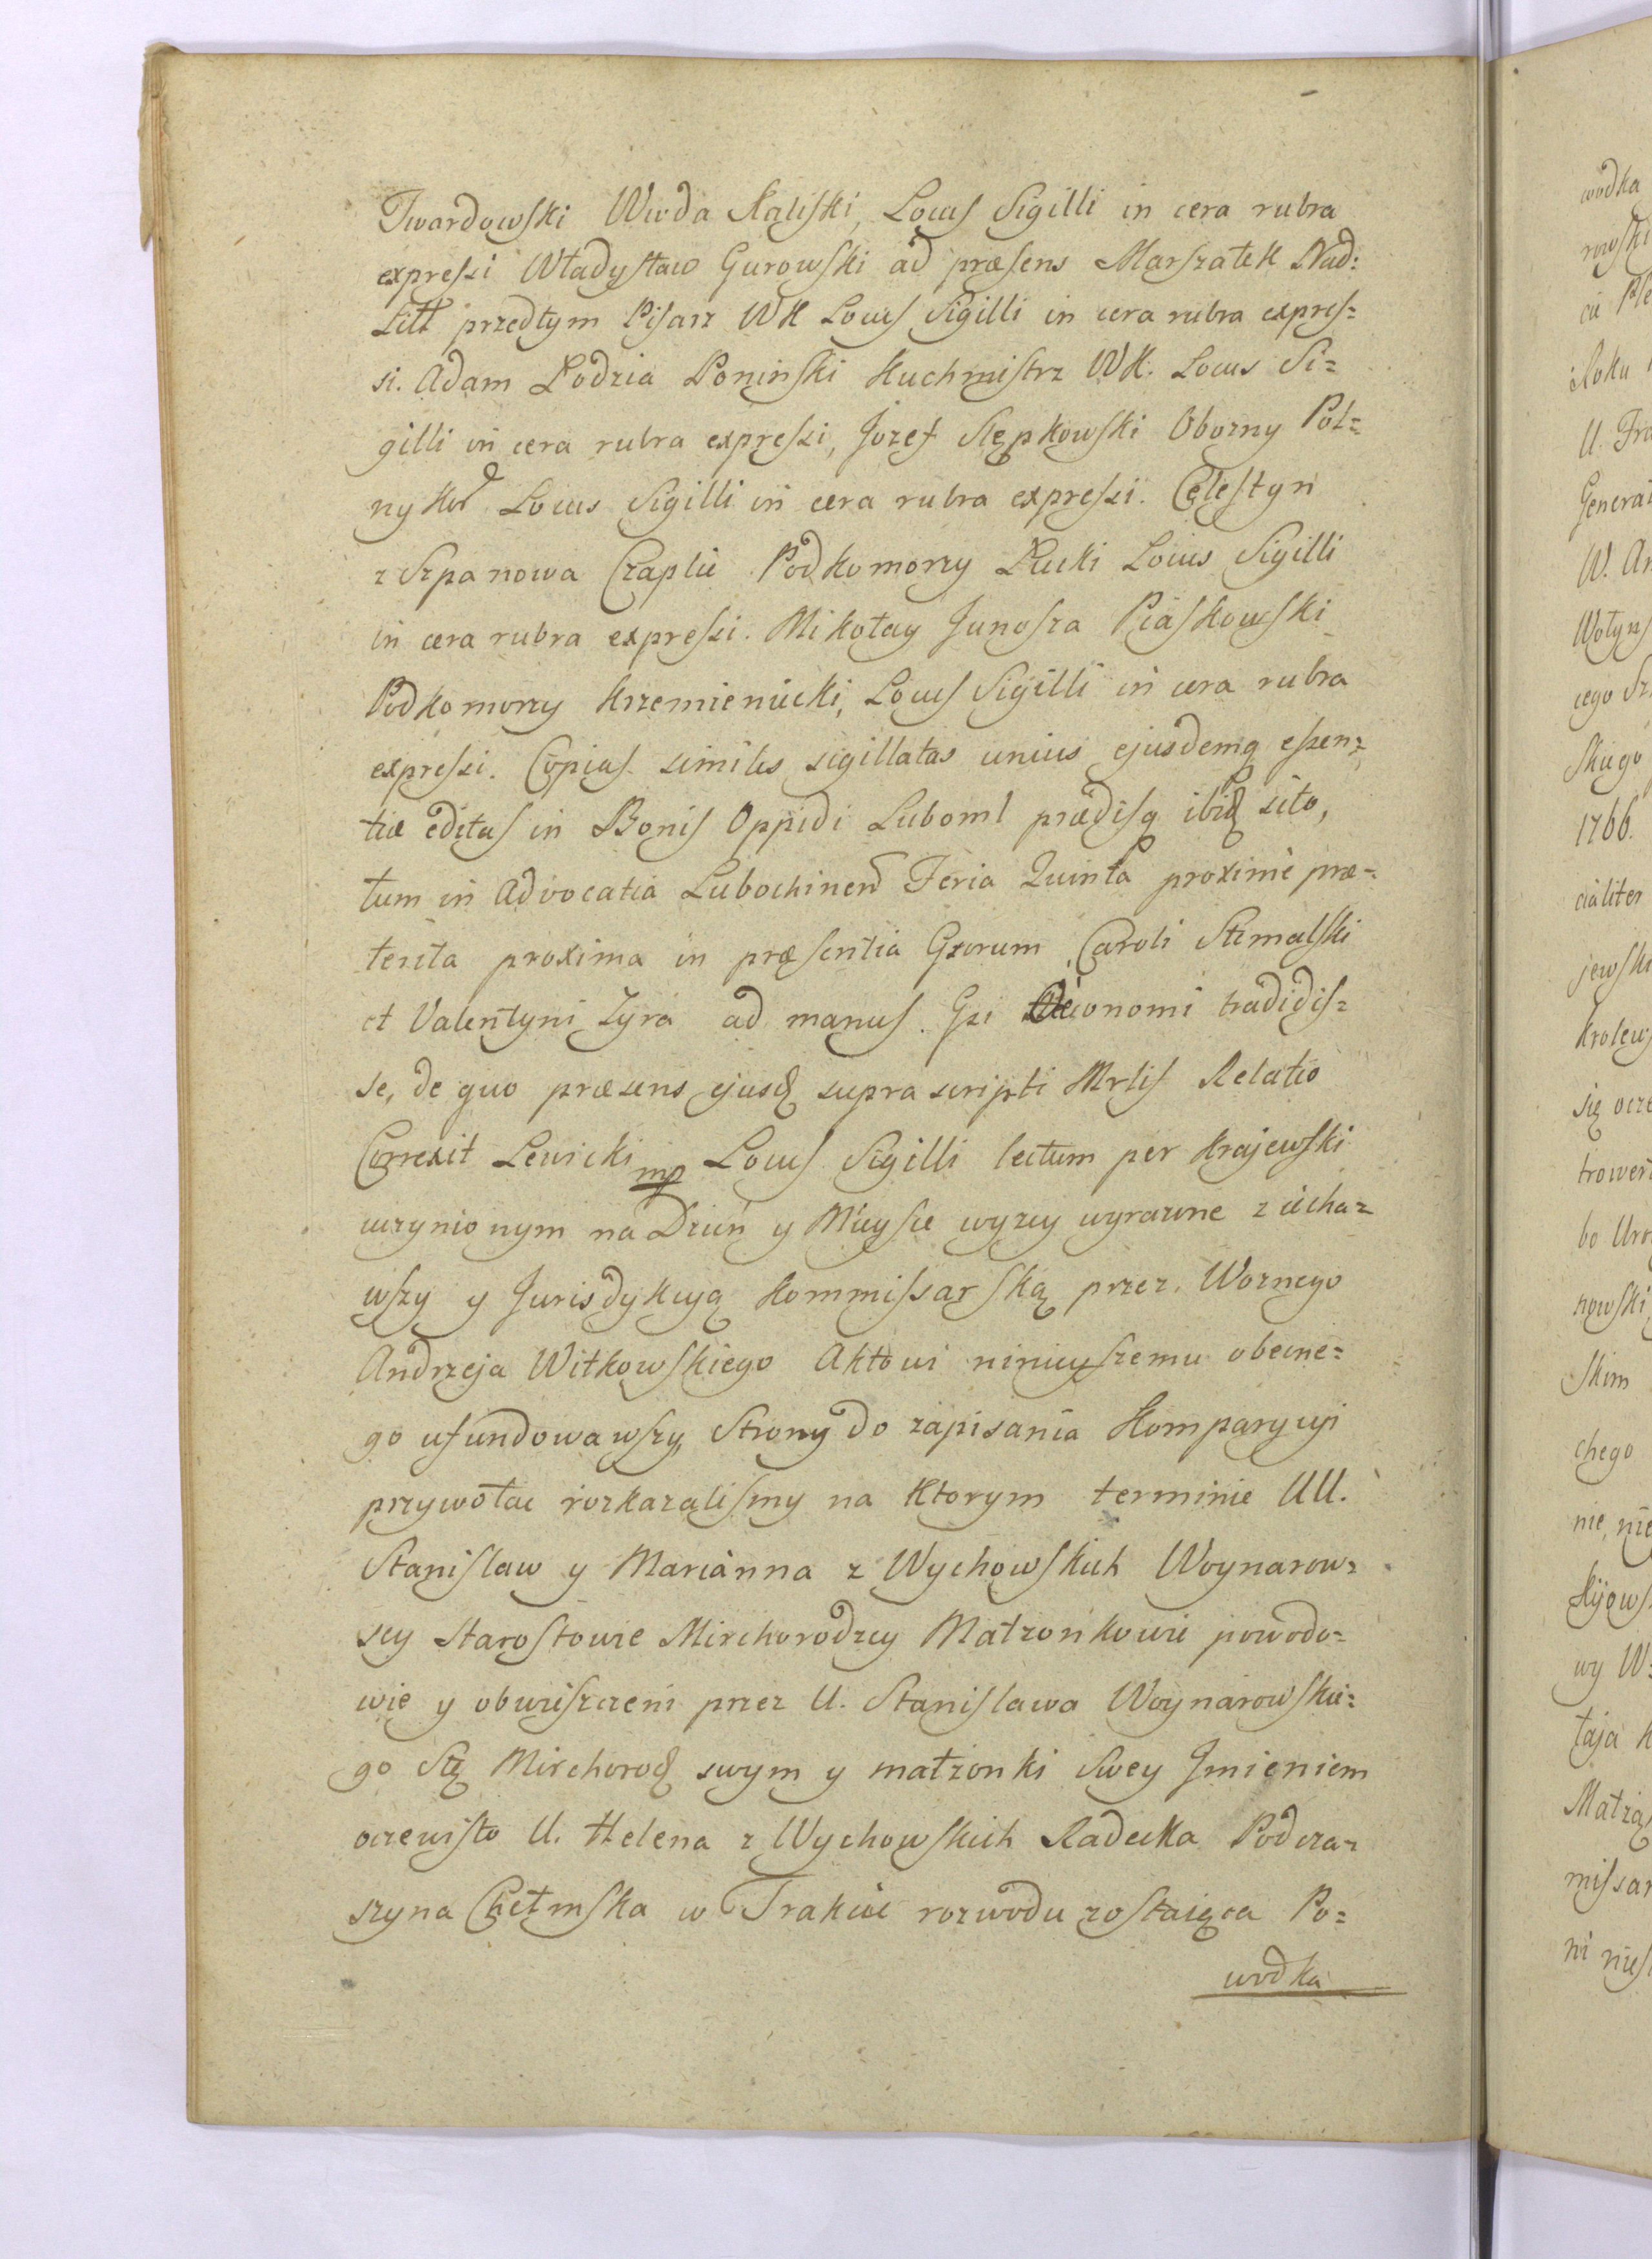 Twardowski Wwda Kaliski, Locus Sigilli in cera rubra
expressi Władysław Gurowski ad præsens Marszałek Nad:
Litt przedtym Pisarz WK Locus Sigilli in cera rubra expres=
si. Adam Łodzia Poninski Kuchmistrz WK. Locus Si=
gilli in cera rubra expressi, Jozef Stępkowski Obozny Pol=
ny Kor Locus Sigilli in cera rubra expressi. Celestyn
z Szpanowa Czaplic Podkomorzy Łucki Locus Sigilli
in cera rubra expressi. Mikołay Junosza Piaskowski
Podkomorzy Krzemieniecki, Locus Sigilli in cera rubra
expressi. Copias similes sigillatas unius ejusdemq essen=
tiæ editas in Bonis Oppidi Luboml prædisq ibid sito,
tum in Advocatia Lubochinen Feria Quinta proxime præ=
terita proxima in præsentia Gsorum Caroli Stemalski
et Valentyni Zyra ad manus Gsi Oeconomi tradidis=
se, de quo præsens ejusd supra scripti Mrlis Relatio
Correxit Lewicki mp Locus Sigilli lectum per Krajewski
uczynionym na Dzień y Mieysce wyzey wyrazone ziecha=
wszy y Jurisdykcyą Kommissarską przez Woznego
Andrzeja Witkowskiego Aktowi ninieyszemu obecne=
go ufundowawszy Strony do zapisania Komparycyi
przywołac rozkazalismy na ktorym terminie UU.
Stanislaw y Marianna z Wychowskich Woynarow=
scy Starostowie Mirchorodzcy Małzonkowie powodo=
wie y obwieszczeni przez U. Stanislawa Woynarowskie=
go Stę Mirchorod swym y małzonki Swey Jmieniem
oczewisto U. Helena z Wychowskich Radecka Podcza=
szyna Chełmska w Trakcie rozwodu zostaiąca Po=
wodka
wodka
rowski
Roku
U. Fra
W. An
1766.
cialiter
jewski
chego